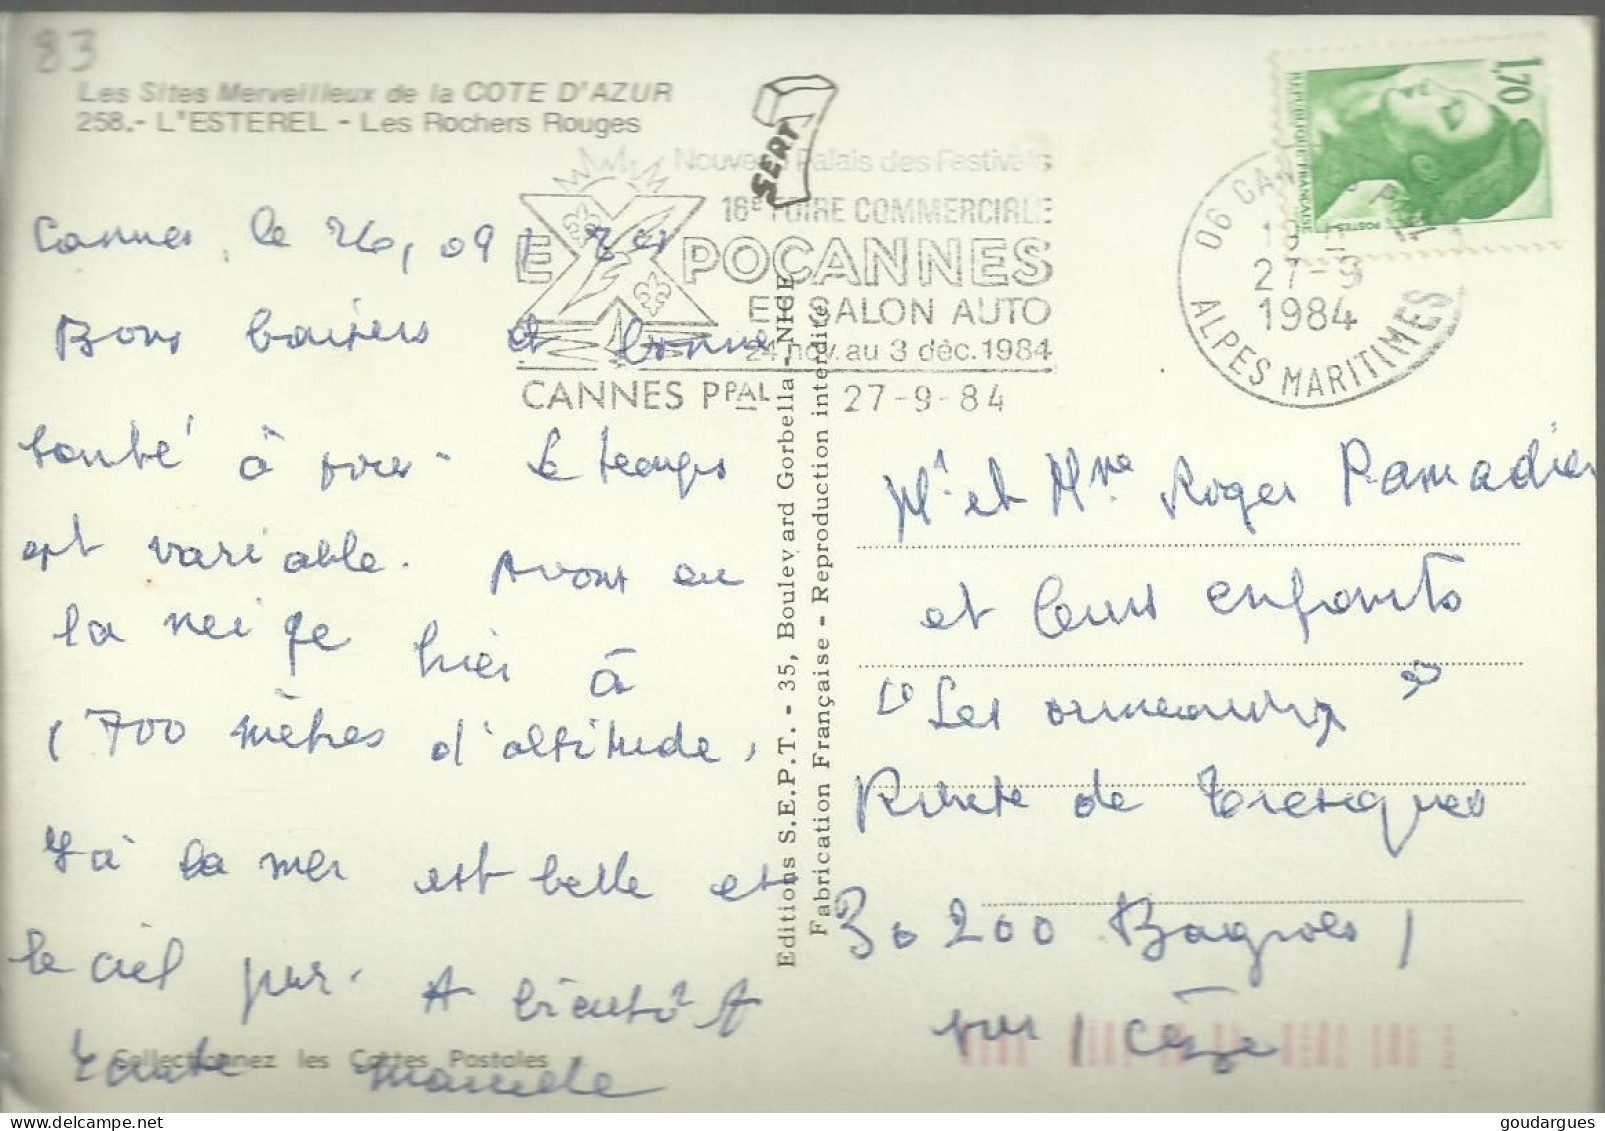 83
Les Sites Merveilleux de la COTE D'AZUR
258.- L'ESTEREL - Les Rochers Rouges
SERT
Nouveau Palais des Festivals
16e FOIRE COMMERCIALE
EXPOCANNES
ET SALON AUTO
24 nov. au 3 déc. 1984
CANNES PPAL 27-9-84
1,70
REPUBLIQUE FRANÇAISE
POSTES
06 CANNES
27-9
1984
ALPES MARITIMES
Cannes, le 26, 09,
Bons baisers et bonne
santé à tous. Le temps
est variable. Avons eu
la neige hier à
1700 mètres d'altitude,
la mer est belle et
le ciel pur. A bientôt
Tante Marcelle
Collectionnez les Cartes Postales
Editions S.E.P.T. - 35, Boulevard Gorbella - NICE
Fabrication Française - Reproduction interdite
Mr et Mme Roger Ramadier
et leurs enfants
"Les ormeaux"
Route de Tresques
30200 Bagnols /
sur / Cèze
goudargues.